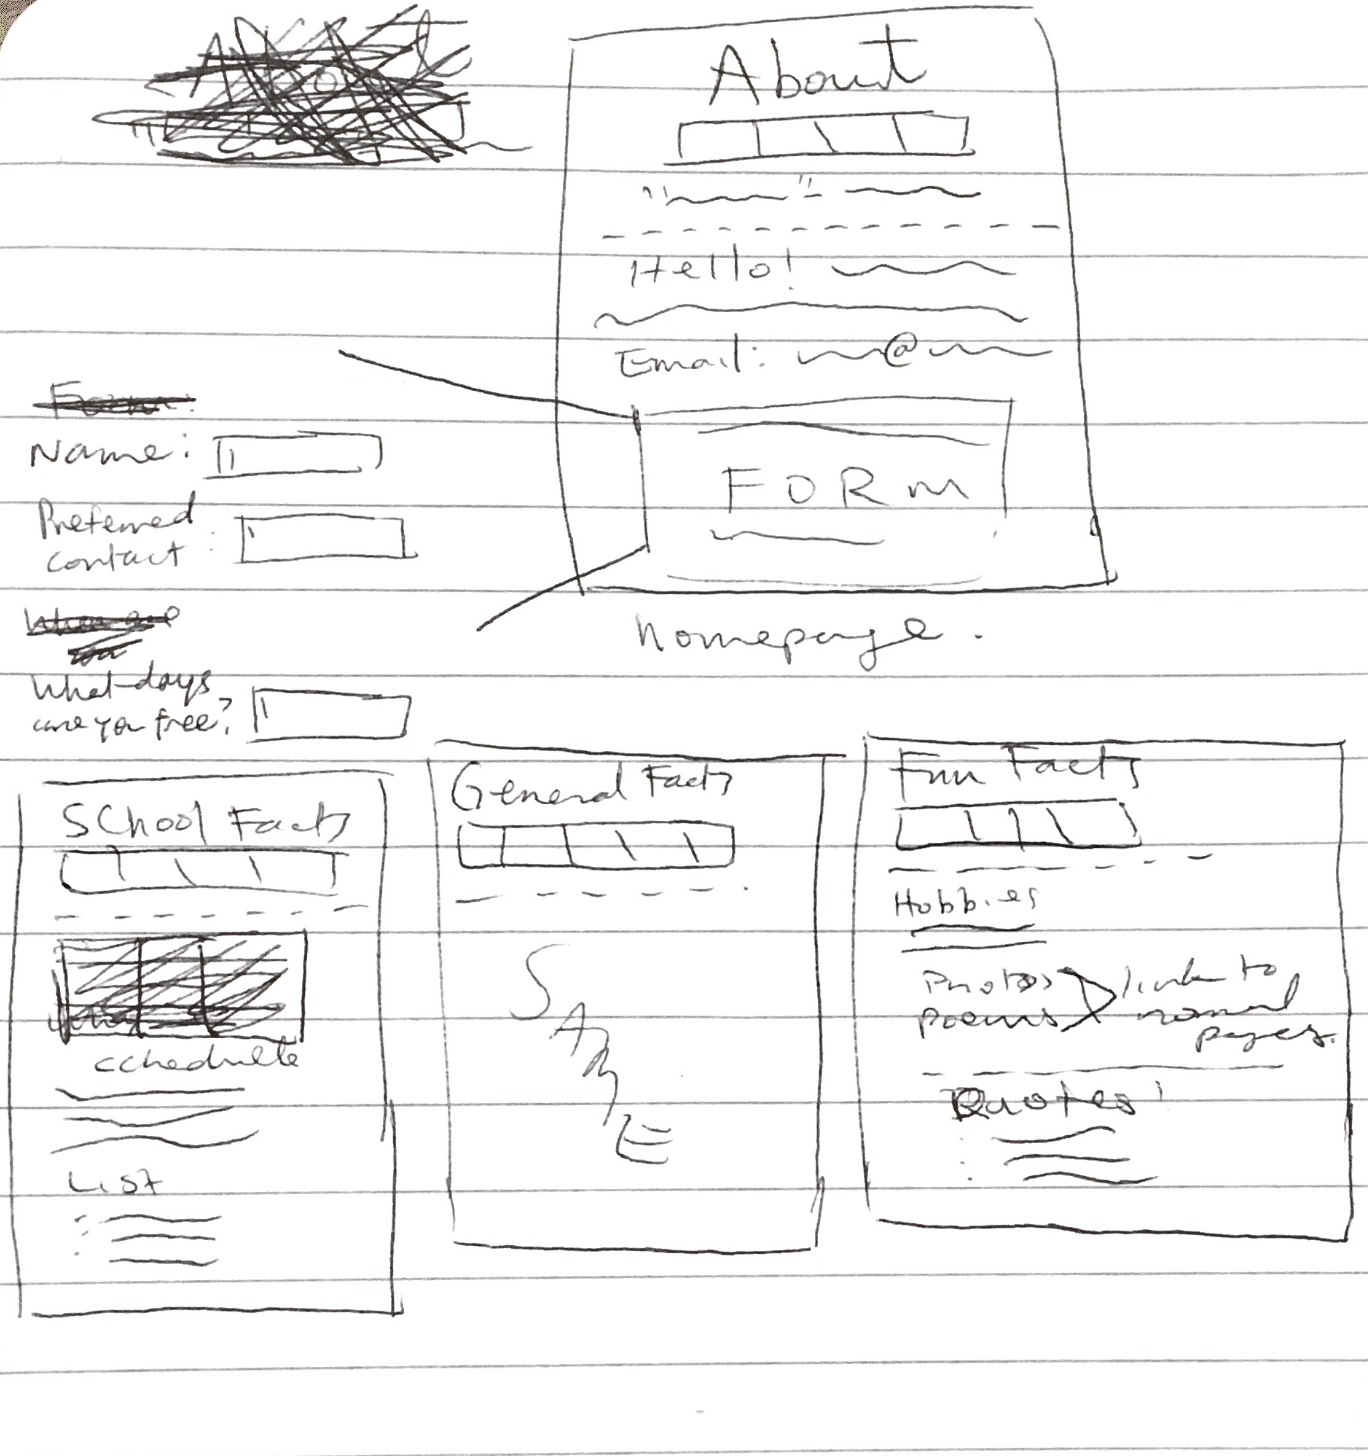 About
Hello!
Email: @
FORM
homepage.
Form:
Name:
Preferred
contact :
When are
you
What days
are you free?
School Facts
schedule
List
General Facts
SAME
Fun Facts
Hobbies
Photos
Poems
link to
normal
pages.
Quotes!